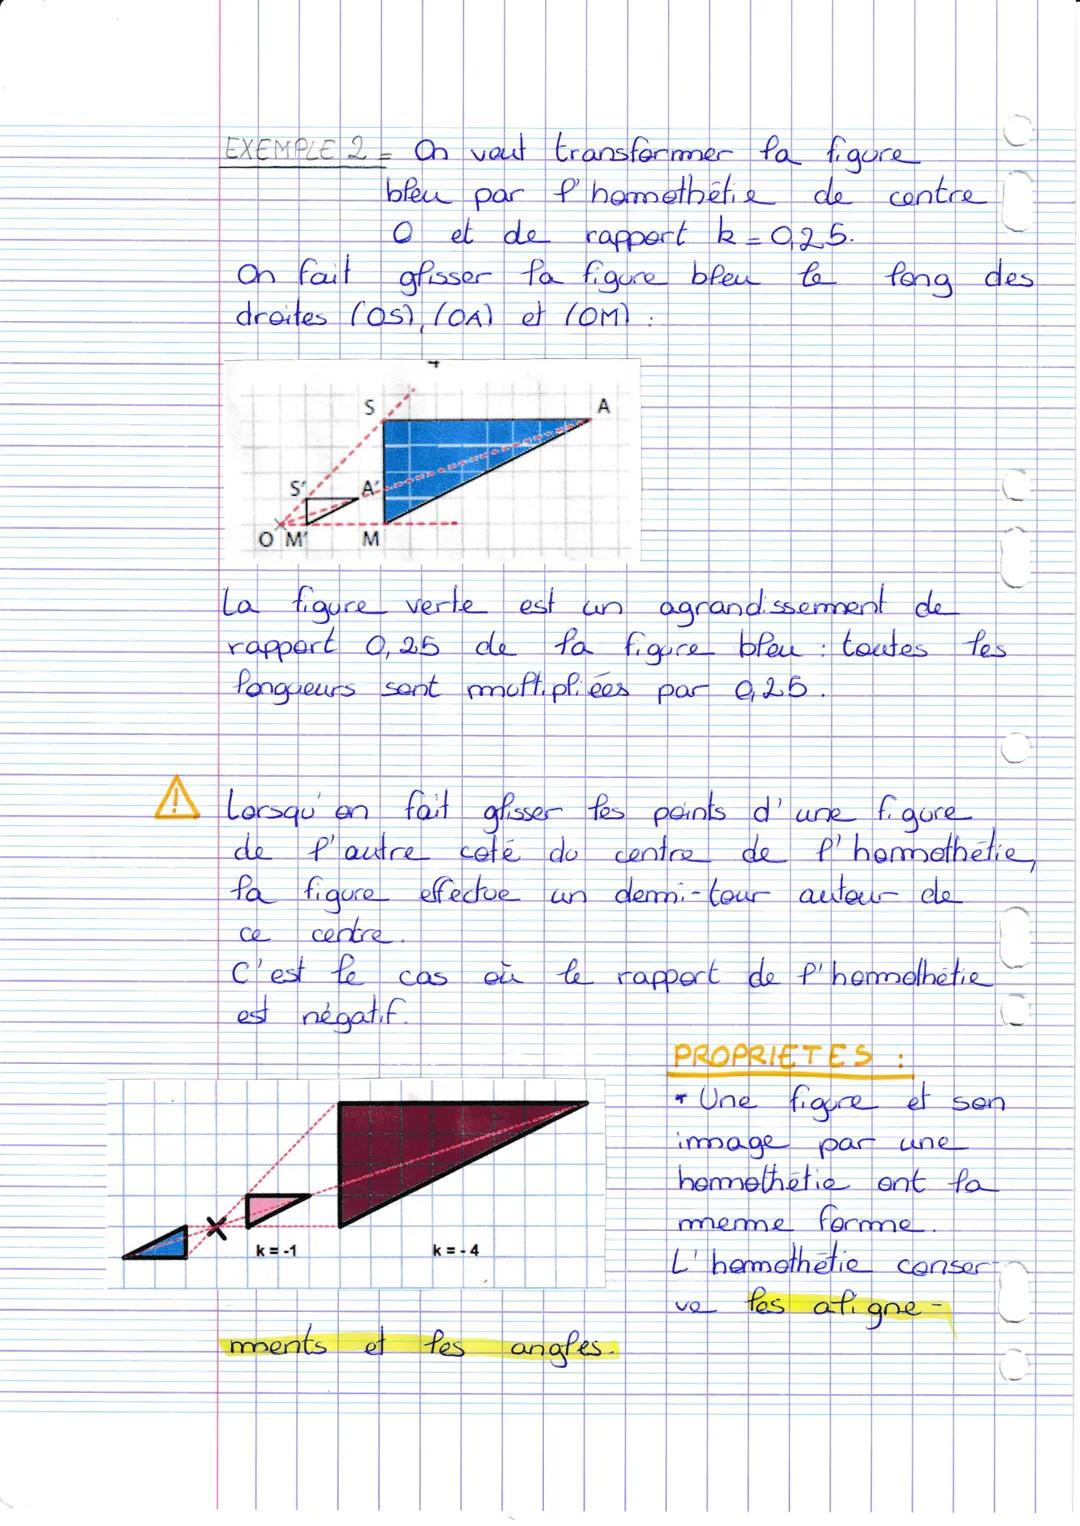 EXEMPLE 2 = On veut transformer la figure
bleu par l'homothétie de centre
O et de rapport k = 0,25.
On fait glisser la figure bleu le long des
droites (OS), (OA) et (OM) :
S
A
S'
A'
O M'
M
La figure verte est un agrandissement de
rapport 0,25 de la figure bleu : toutes les
longueurs sont multipliées par 0,25.
Lorsqu'on fait glisser les points d'une figure
de l'autre coté du centre de l'homothétie,
la figure effectue un demi-tour autour de
ce centre.
C'est le cas où le rapport de l'homothétie
est négatif.
k = -1
k = - 4
PROPRIETES :
* Une figure et son
image par une
homothétie ont la
meme forme.
L'homothétie conser-
ve les aligne-
ments et les angles.